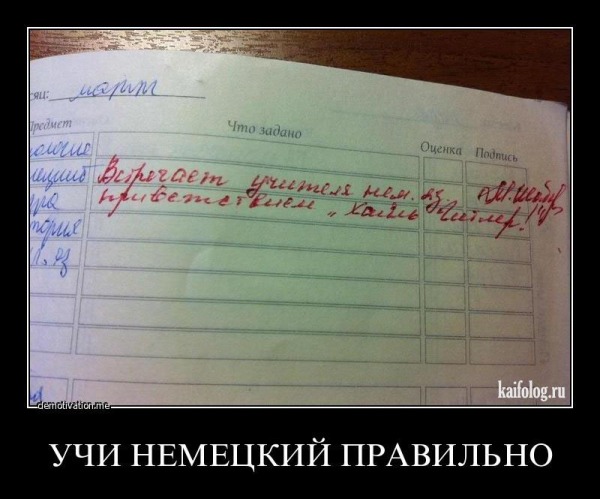 сяц: март
Предмет Что задано Оценка Подпись
ология
Встречает учителя нем. яз
приветствием „Хайль Гитлер!"
тория
л. яз
demotivation.me
kaifolog.ru
УЧИ НЕМЕЦКИЙ ПРАВИЛЬНО